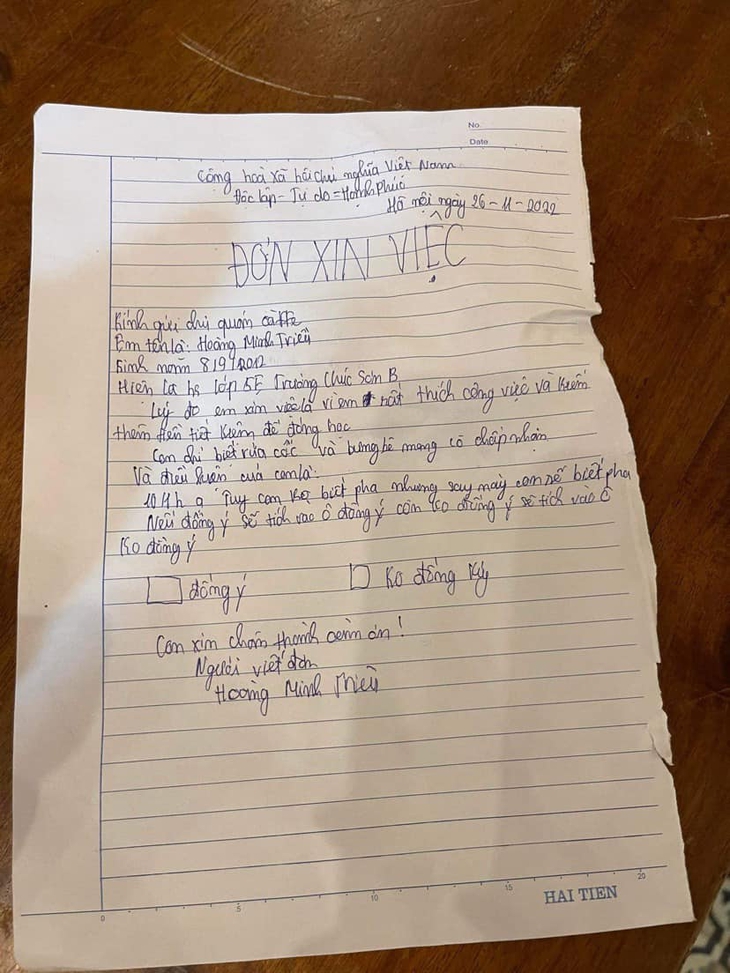 No.
Date
Cộng hoà xã hội chủ nghĩa Việt Nam
Độc lập - Tự do = Hạnh Phúc
Hà nội ngày 26-11-2022
ĐƠN XIN VIỆC
Kính gửi chủ quán cà fe
Em tên là: Hoàng Minh Triều
Sinh năm 8/9/2012
Hiện là hs lớp 5E Trường Chúc Sơn B
Lý do em xin việc là vì em rất thích công việc và kiếm
thêm tiền tiết kiệm để đóng học
Con chỉ biết rửa cốc và bưng bê mong cô chấp nhận
Và điều kiện của con là:
10 k h ạ Tuy con ko biết pha nhưng sau này con sẽ biết pha
Nếu đồng ý sẽ tích vào ô đồng ý còn ko đồng ý sẽ tích vào ô
ko đồng ý
đồng ý ko đồng ký
Con xin chân thành cảm ơn!
Người viết đơn
Hoàng Minh Triều
0 5 10 15 20
HAI TIEN